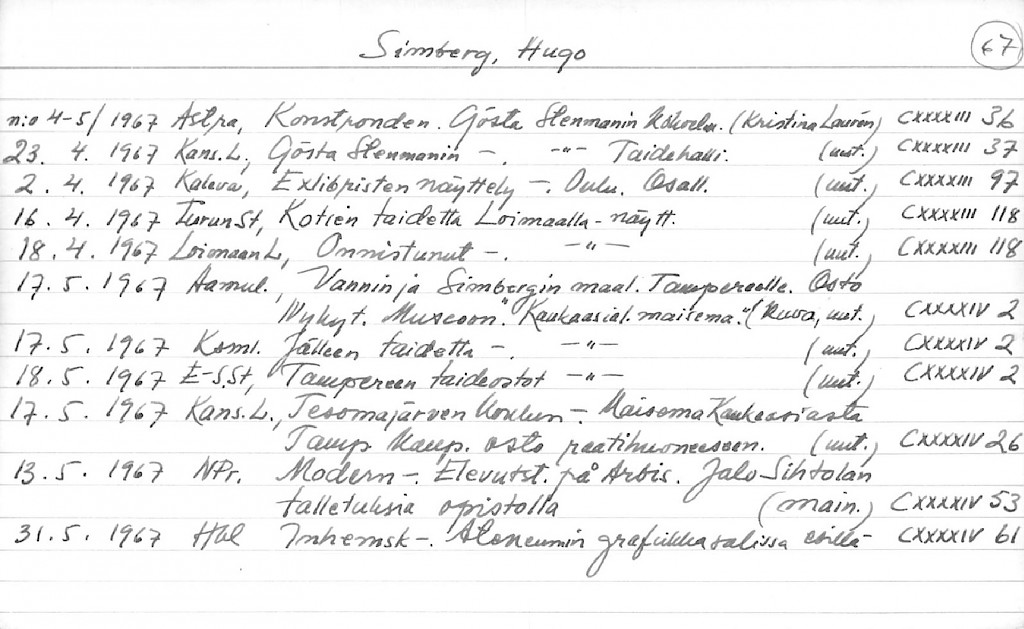 Simberg, Hugo 67
n:o 4-5/1967 Astra, Konstronden. Gösta Stenmanin kokoelm. (Kristina Laurén) CXXXXIII 36
23. 4. 1967 Kans.L, Gösta Stenmanin -. -"- Taidehalli. (uut.) CXXXXIII 37
2. 4. 1967 Kaleva, Exlibristen näyttely -. Oulu. Osall. (uut.) CXXXXIII 97
16. 4. 1967 TurunSt, Kotien taidetta Loimaalla - näytt. (uut.) CXXXXIII 118
18. 4. 1967 LoimaanL, Onnistunut -. -"- (uut.) CXXXXIII 118
17. 5. 1967 Aamul., Vannin ja Simbergin maal. Tampereelle. Osto
Nykyt. Museoon. "Kaukaasial. maisema." (kuva, uut.) CXXXXIV 2
17. 5. 1967 Ksml. Jälleen taidetta -. -"- (uut.) CXXXXIV 2
18. 5. 1967 E-S.St, Tampereen taideostot -"- (uut.) CXXXXIV 2
17. 5. 1967 Kans.L., Tesomajärven koulun - Maisema Kaukaasiasta
Tamp kaup. osto raatihuoneeseen. (uut.) CXXXXIV 26
13. 5. 1967 NPr. Modern -. Elevutst. på Arbis. Jalo Sihtolan
talletuksia opistolla (main.) CXXXXIV 53
31. 5. 1967 Hbl Inhemsk -. Ateneumin grafiikkasalissa esillä - CXXXXIV 61